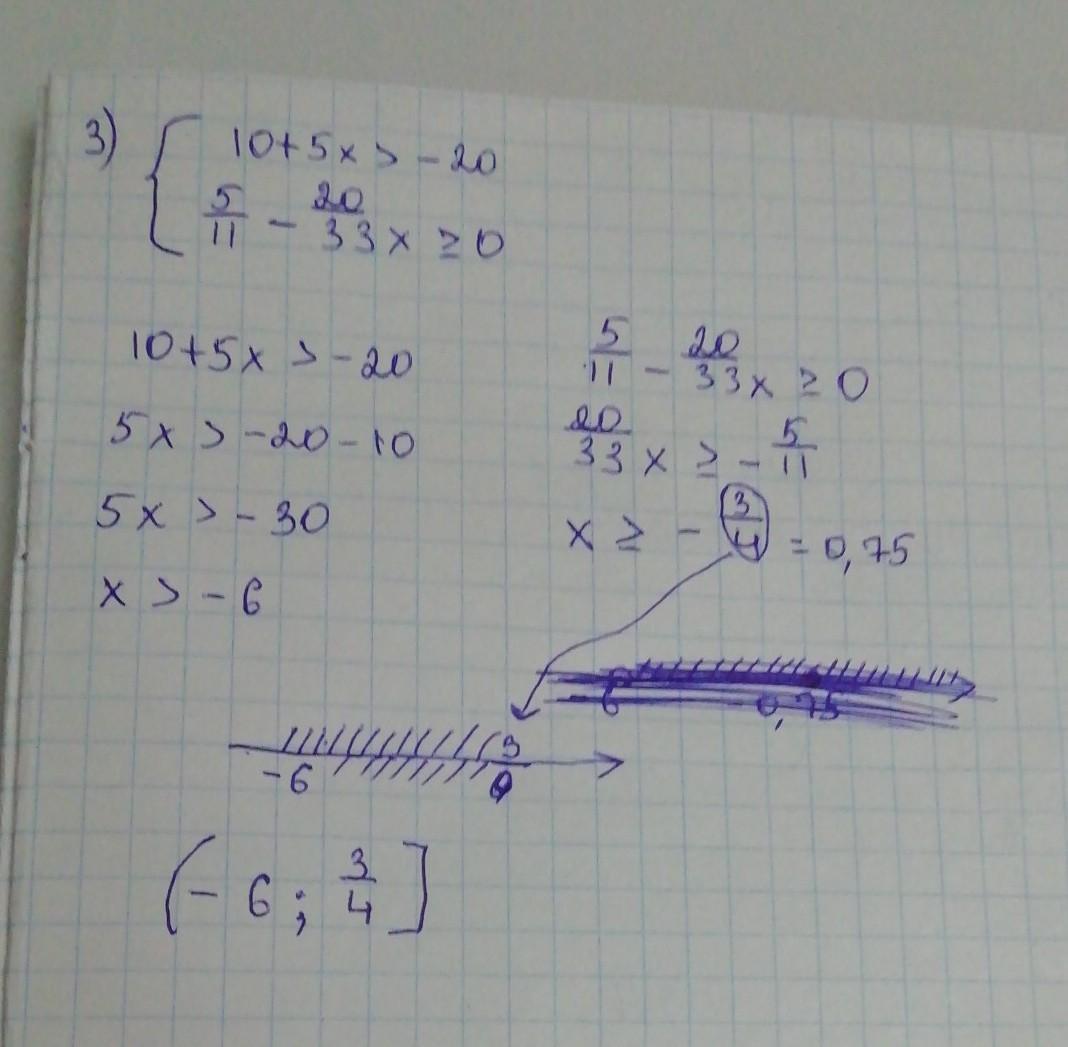 3) { 10+5x > -20
5/11 - 20/33 x ≥ 0
10+5x > -20
5x > -20-10
5x > -30
x > -6
5/11 - 20/33 x ≥ 0
20/33 x ≥ - 5/11
x ≥ - 3/4 = 0,75
-6 0,75
-6 3
(- 6 ; 3/4 ]